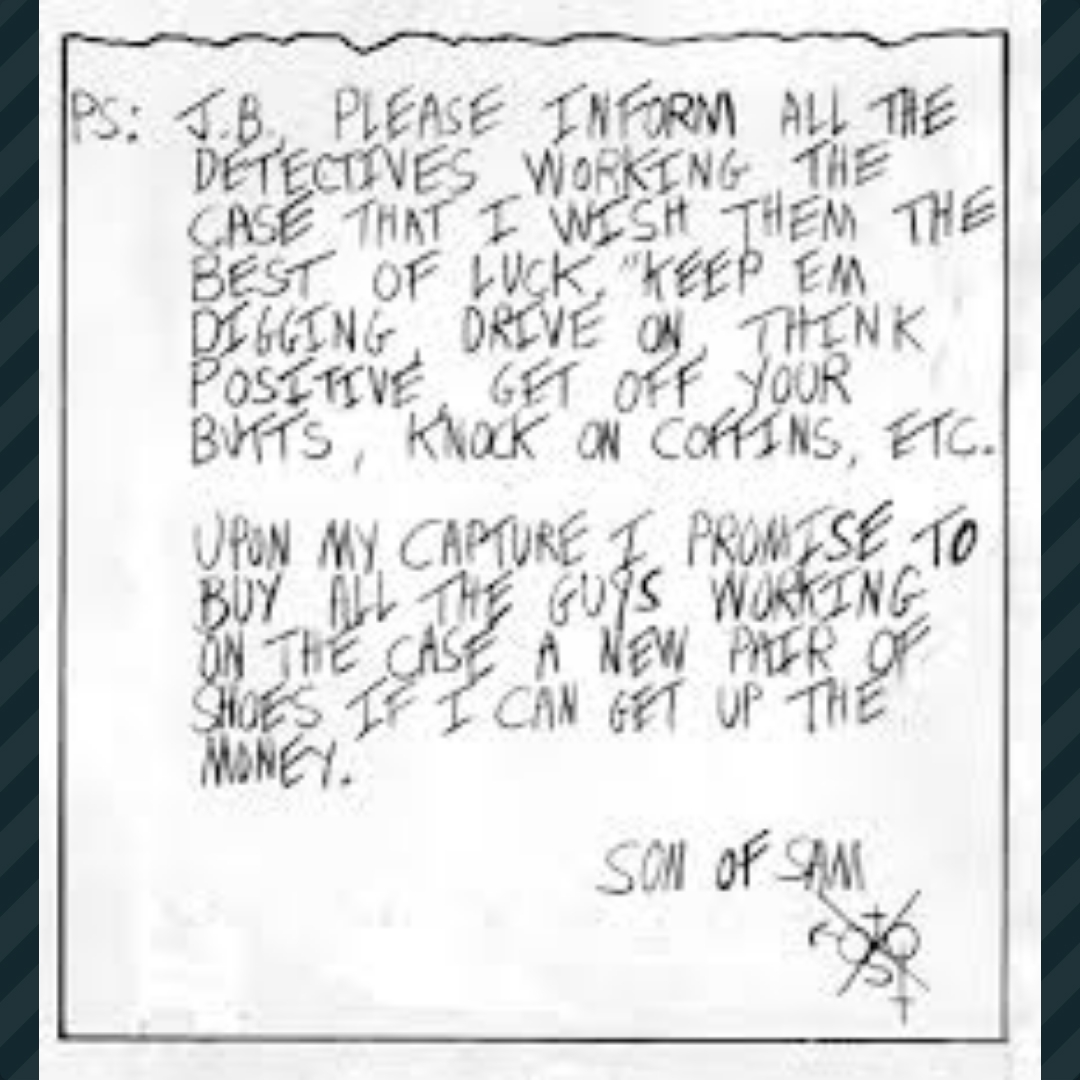 PS: J.B., PLEASE INFORM ALL THE
DETECTIVES WORKING THE
CASE THAT I WISH THEM THE
BEST OF LUCK. "KEEP EM
DIGGING, DRIVE ON, THINK
POSITIVE, GET OFF YOUR
BUTTS, KNOCK ON COFFINS, ETC.
UPON MY CAPTURE I PROMISE TO
BUY ALL THE GUYS WORKING
ON THE CASE A NEW PAIR OF
SHOES IF I CAN GET UP THE
MONEY.
SON OF SAM